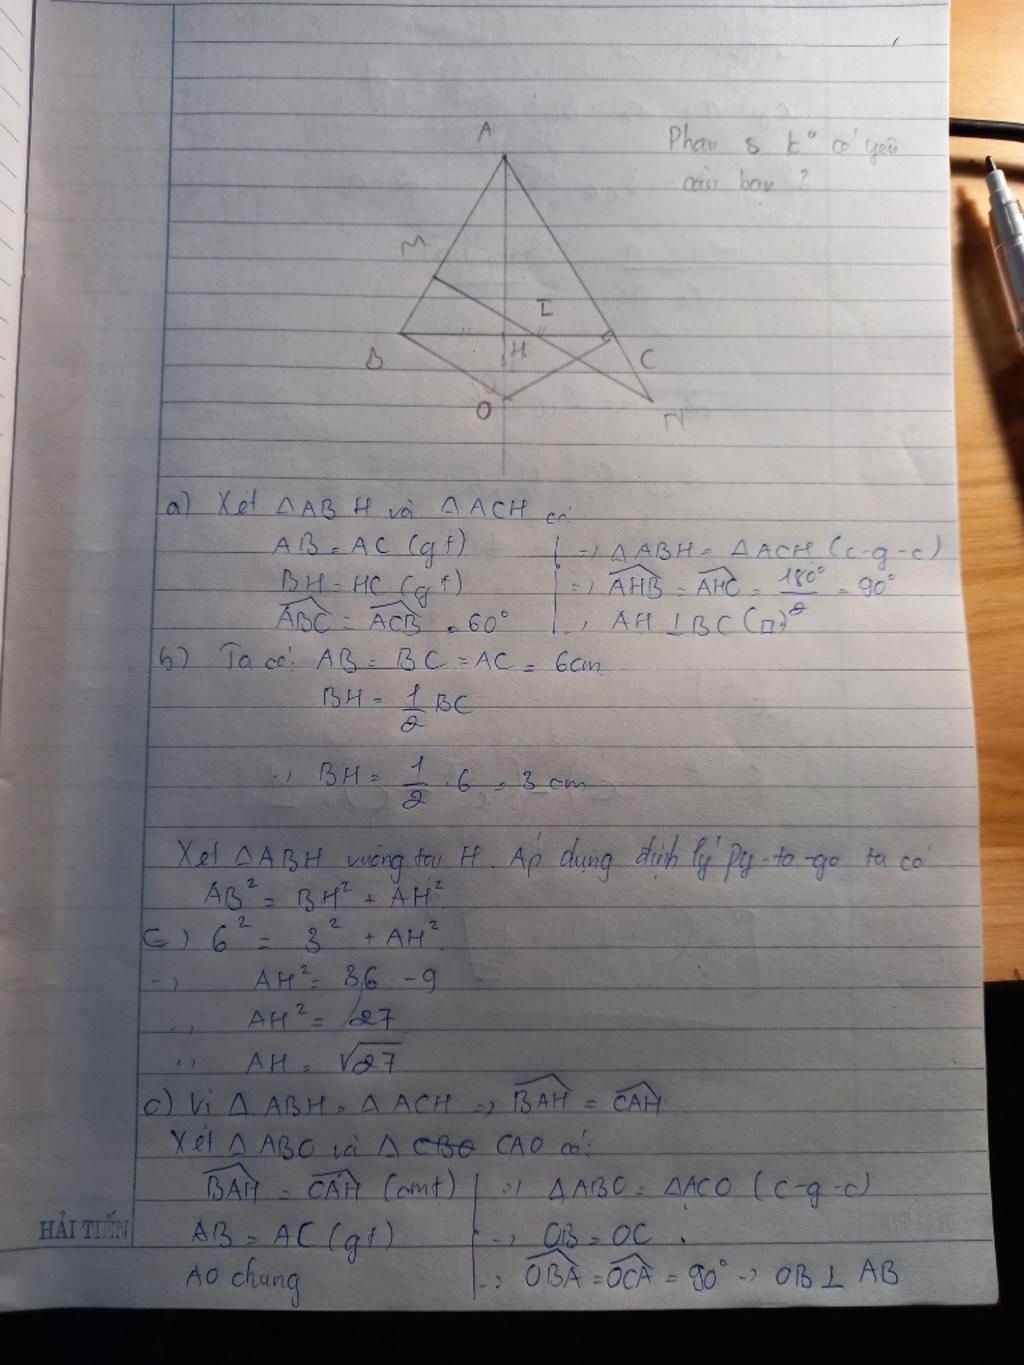 A
Phần s k° có yêu
cầu bạn?
M
I
B
H
C
O
N
a) Xét △ABH và △ACH có
AB = AC (gt) => △ABH = △ACH (c-g-c)
BH = HC (gt) => AHB = AHC = 180°/2 = 90°
ABC = ACB = 60° => AH ⊥ BC
b) Ta có: AB = BC = AC = 6cm
BH = 1/2 BC
=> BH = 1/2 . 6 = 3 cm
Xét △ABH vuông tại H. Áp dụng định lý Py-ta-go ta có
AB² = BH² + AH²
6² = 3² + AH²
=> AH² = 36 - 9
=> AH² = 27
=> AH = √27
c) Vì △ABH = △ACH => BAH = CAH
Xét △ABO và △ CAO có:
BAH = CAH (cmt) => △ABO = △ACO (c-g-c)
AB = AC (gt) => OB = OC.
AO chung => OBA = OCA = 90° => OB ⊥ AB
HẢI TIẾN